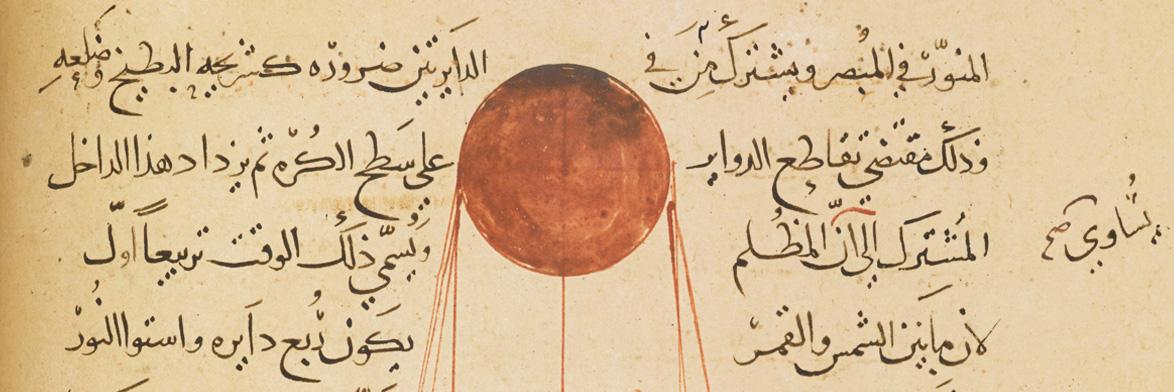 المنوّر في المبصر ويشترك من في الدايرتين ضروره كشريحه البطيخ وضلعه
وذلك مقتضي تقاطع الدواير على سطح الكره ثم يزداد هذا الداخل
المُشترك الى آنّ المظلم ويُسمّي ذلك الوقت تربيعاً اولّ
يساوي صح
لان ما بين الشمس والقمر يكون رُبع دايره واستوا النُور